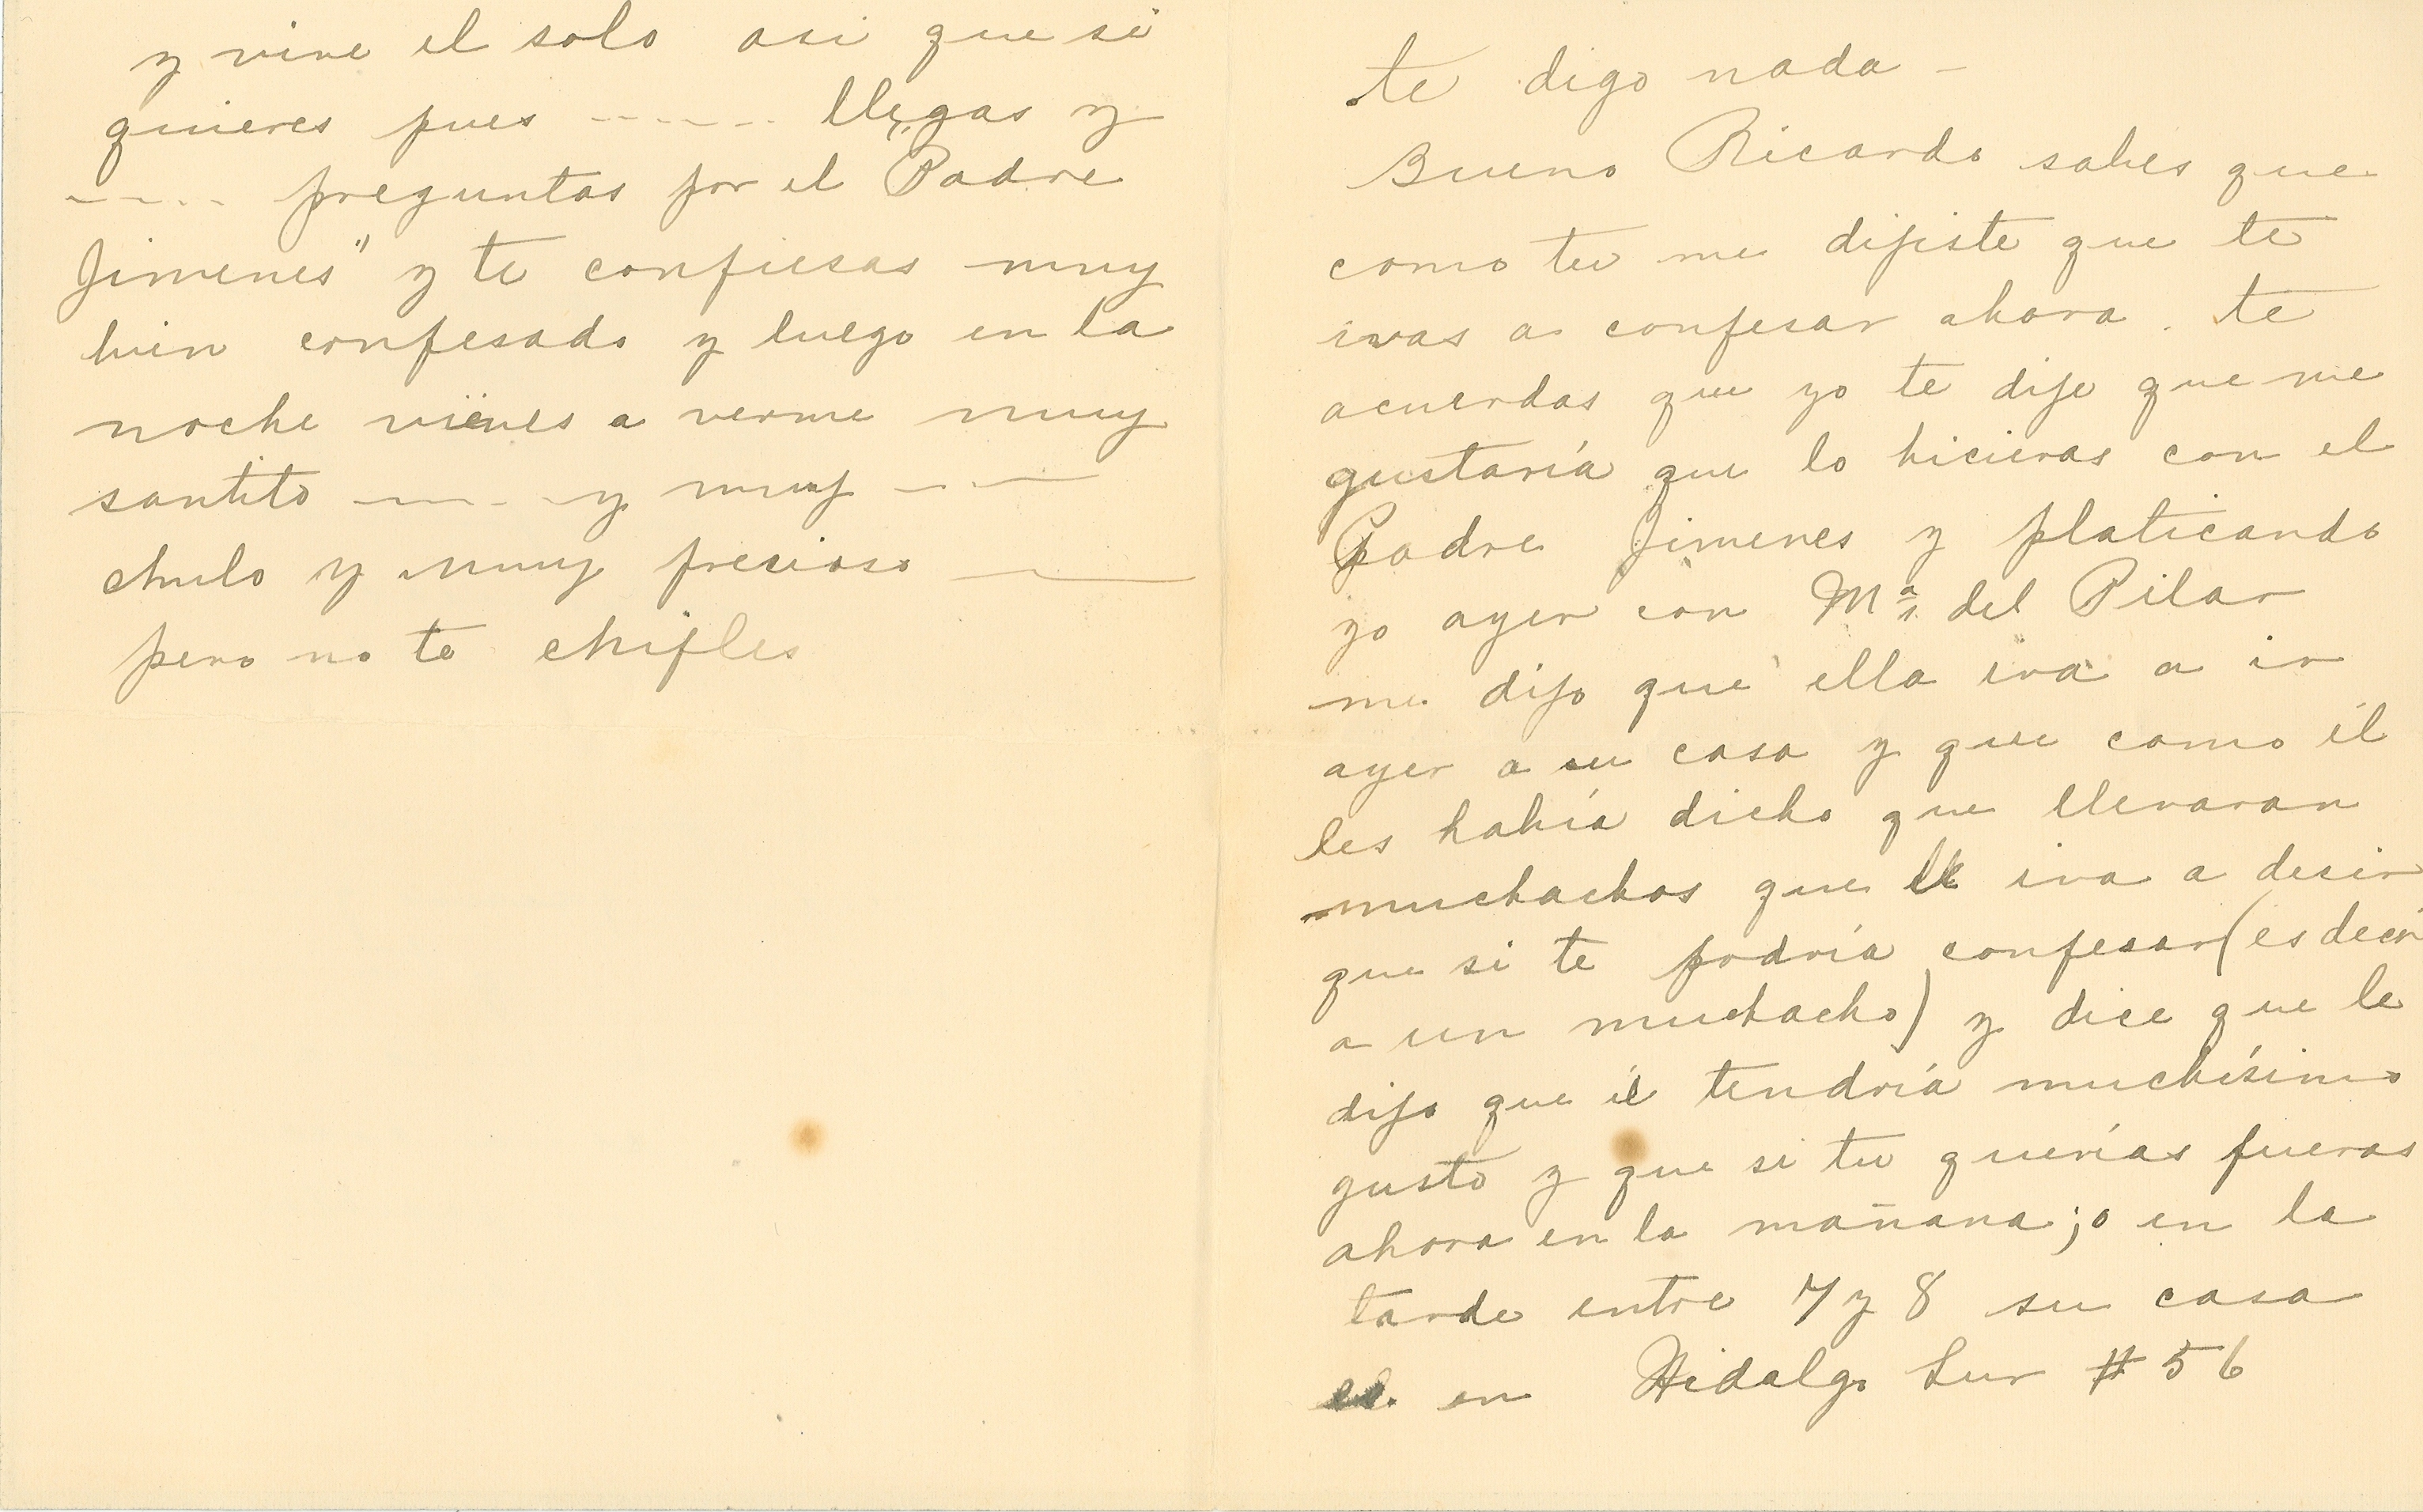 y vive el solo asi que si
quieres pues ------ llegas y
---- preguntas por el "Padre
Jimenes" y te confiesas muy
bien confesado y luego en la
noche vienes a verme muy
santito ---- y muy ---
chulo y muy precioso ——
pero no te chifles
te digo nada -
Bueno Ricardo sabes que
como tu me dijiste que te
ivas a confesar ahora. te
acuerdas que yo te dije que me
gustaría que lo hicieras con el
Padre Jimenes y platicando
yo ayer con Mª del Pilar
me dijo que ella iva a ir
ayer a su casa y que como él
les había dicho que llevaran
muchachos que le iva a desir
que si te podría confesar (es decir
a un muchacho) y dice que le
dijo que él tendría muchísimo
gusto y que si tu querías fueras
ahora en la mañana; o en la
tarde entre 7 y 8 su casa
en Hidalgo Sur #56